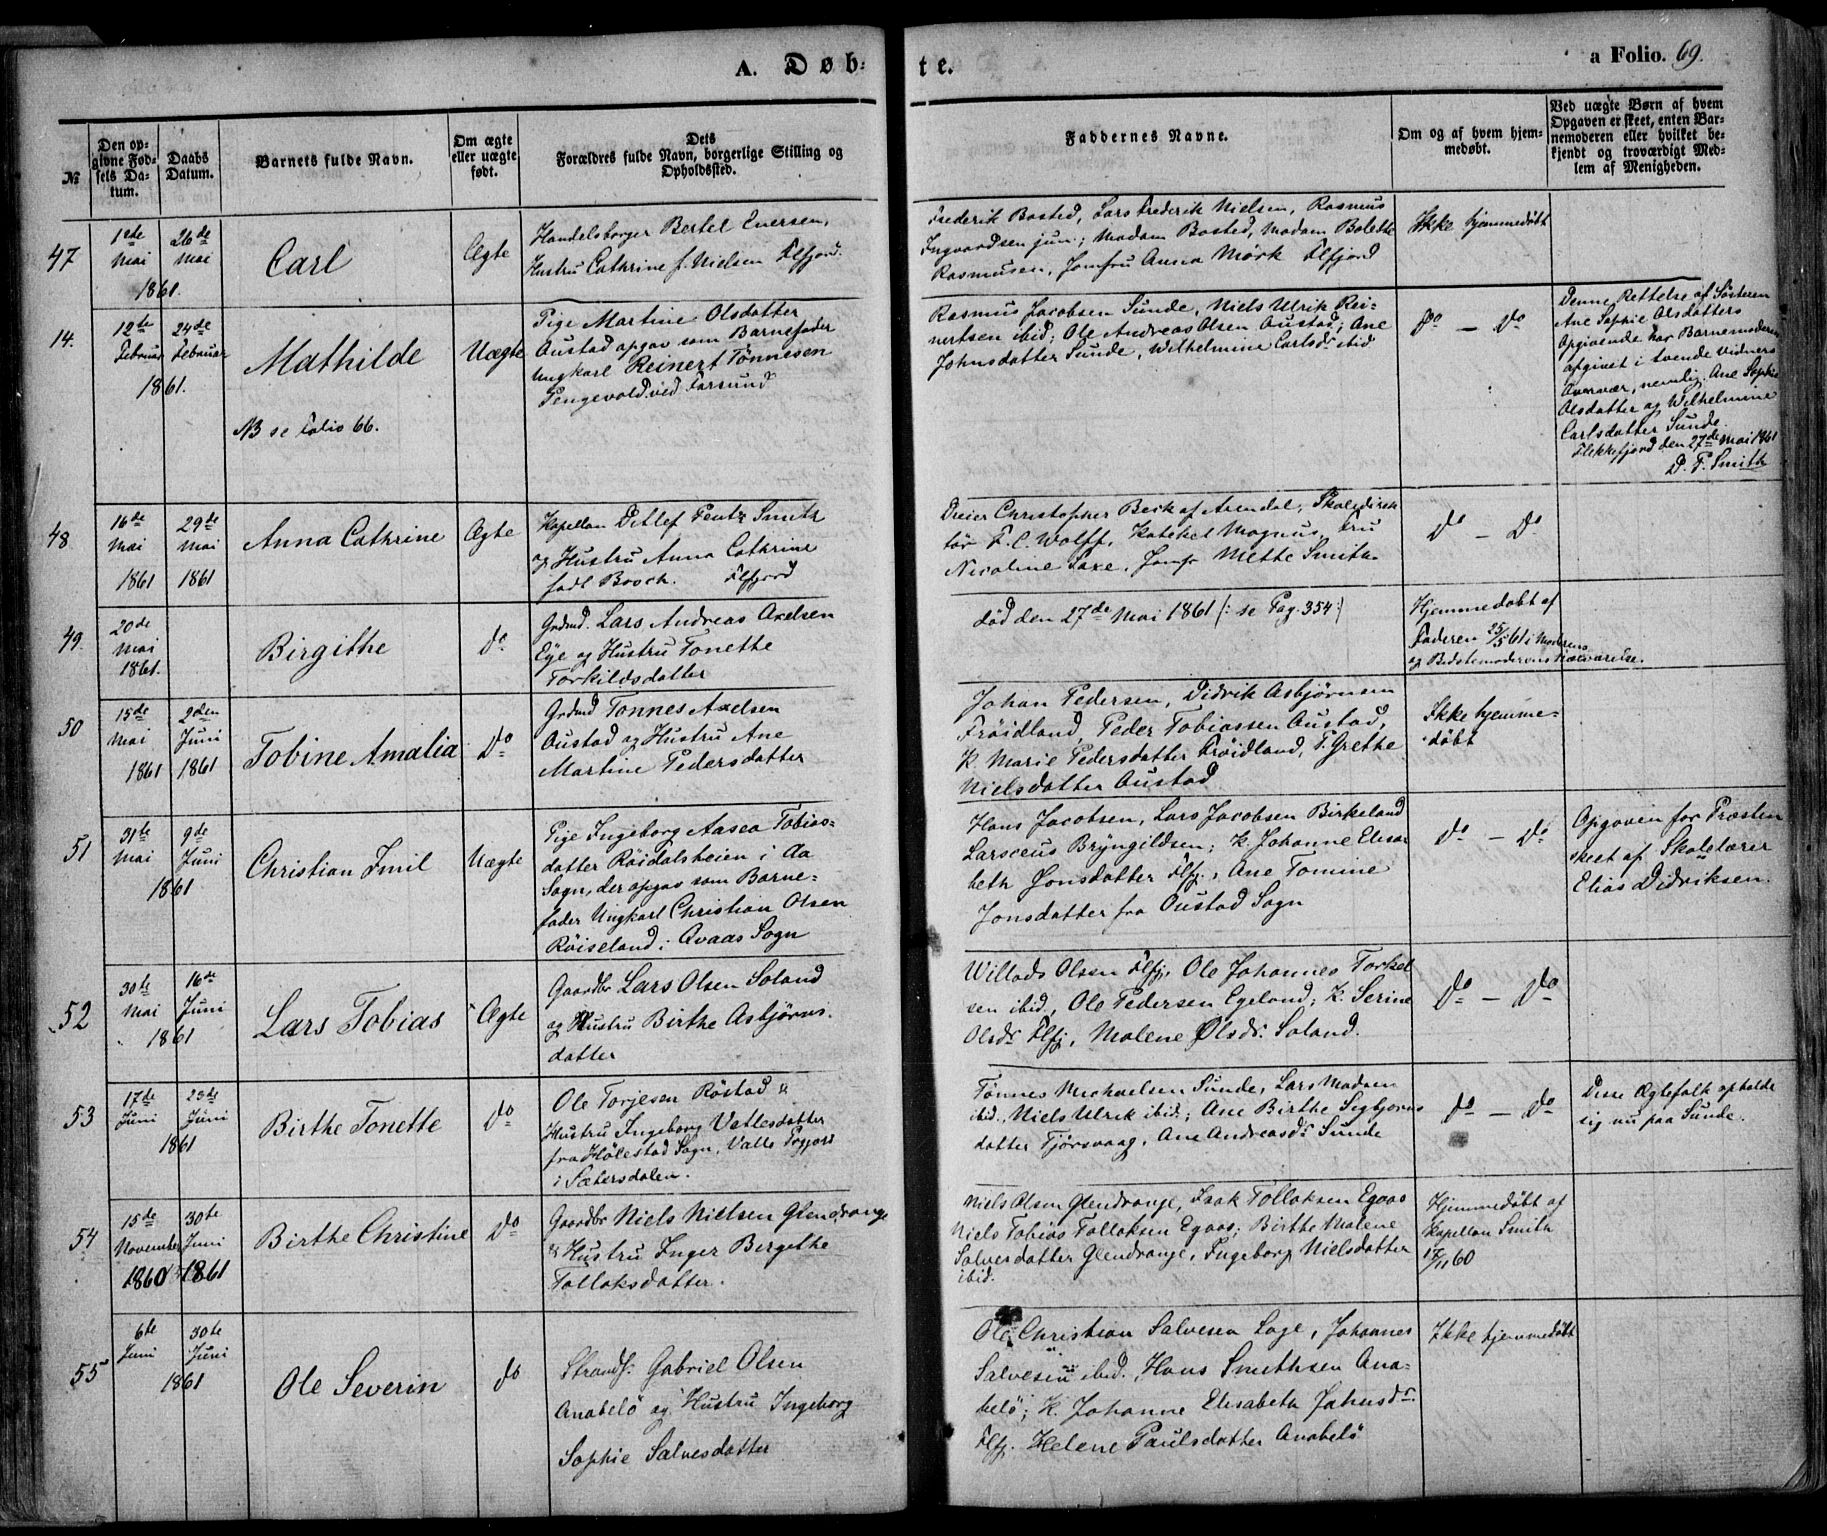 A. Døb-
te.
a Folio. 69.
№
Den op-
givne Fød-
sels Da-
tum.
Daabs
Datum.
Barnets fulde Navn.
Om ægte
eller uægte
født.
Dets
Forældres fulde Navn, borgerlige Stilling og
Opholdssted.
Faddernes Navne.
Om og af hvem hjem-
medøbt.
Ved uægte Børn af hvem
Opgaven er skeet, enten Bar-
nemoderen eller hvilket be-
kjendt og troværdigt Med-
lem af Menigheden.
47
1ste
Mai
26de
Mai
1861.
Carl
Ægte
Handelsborger Bertel Eversen,
Hustru Cathrine f. Nielsen Flfjord.
Frederik Bosted, Lars Frederik Nielsen, Rasmus
Ingvardsen jun; Madam Bosted, Madam Bolette
Rasmusen, Jomfru Anna Mörk Flfjord
Ikke hjemmedøbt
14.
12te
Februar
24de
Februar
1861.
Mathilde
NB se Folio 66.
Uægte
Pige Martine Olsdatter
Austad opgav som Barnefader
Ungkarl Reinert Tönnesen
Pengevold ved Farsund
Rasmus Jacobsen Sunde, Niels Ulrik Rei-
nertsen ibid; Ole Andreas Olsen Austad; Ane
Johnsdatter Sunde, Wilhelmine Carlsdr ibid
Do — Do
Denne Rettelse af Søsteren
Ane Sophie Olsdatters
Opgivende har Barnemoderen
afgivet i tvende Vidners
Overvær, nemlig: Ane Sophie
Olsdatter og Wilhelmine
Carlsdatter Sunde.
Flekkefjord den 27de Mai 1861
D. P. Smith
48
16de
Mai
1861
29de
Mai
1861
Anna Cathrine
Ægte
Kapellan Ditlef Pentz Smith
og Hustru Anna Cathrine
født Booch. Flfjord
Dreier Christopher Beck af Arendal, Skoledirek
tør F. C. Wolff, Kateket Magnus, Fru
Nicoline Saxe, Jomfr Mette Smith.
Do — Do
49.
20de
Mai
1861.
Birgithe
do
Grdmd. Lars Andreas Axelsen
Eye og Hustru Tonette
Torkildsdatter
død den 27de Mai 1861 (: se Pag. 354:)
Hjemmedøbt af
Faderen 25/5 61 i Moderens
og Bedstemoderens Nærværelse.
50
15de
Mai
1861
2den
Juni
1861
Tobine Amalia
Do
Grdmd Tonnes Axelsen
Austad og Hustru Ane
Martine Pedersdatter
Johan Pedersen, Didrik Asbjørnsen
Frøidland, Peder Tobiassen Austad,
K. Marie Pedersdatter Frøidland, P. Grethe
Nielsdatter Austad
Ikke hjemme-
døbt
51
31te
Mai
9de
Juni
1861
Christian Emil
Uægte
Pige Ingeborg Aasea Tobias-
datter Røidalsheien i Aa
Sogn, der opgav som Barne-
fader Ungkarl Christian Olsen
Röiseland i Qvaas Sogn
Hans Jacobsen, Lars Jacobsen Birkeland
Larsceus Bryngildsen; K. Johanne Elisa
beth Jonsdatter Flfj., Ane Tomine
Jonsdatter fra Oustad Sogn
do — Do
Opgaven for Præsten
skeet af Skolelærer
Elias Didriksen.
52
30te
Mai
16de
Juni
1861
Lars Tobias
Ægte
Gaardbr Lars Olsen Soland
og Hustru Birthe Asbjørns-
datter
Willads Olsen Flfj. Ole Johannes Torkel
sen ibid, Ole Pedersen Egeland; K. Serine
Olsdr Flfj, Malene Olsdr. Soland.
do — Do
53
17de
Juni
23de
Juni
1861
Birthe Tonette
do
Ole Torjesen Röstad &
Hustru Ingeborg Vattesdatter
fra Hölestad Sogn, Valle Pgfjord
i Sætersdalen.
Tønnes Michaelsen Sunde, Lars Madsen
ibid., Niels Ulrik ibid; Ane Birthe Segbjørns
datter Tjørsvaag, Ane Andreasdr Sunde
do — do
Disse Ægtefolk opholde
sig nu paa Sunde.
54
15de
November
1860
30te
Juni
1861
Birthe Christine
Do
Gaardbr Niels Nielsen Glendrange
& Hustru Inger Bergithe
Tollaksdatter.
Niels Olsen Glendrange, Isak Tollaksen Egaas
Niels Tobias Tollaksen Egaas; Birthe Malene
Salvesdatter Glendrange, Ingeborg Nielsdatter
ibid.
Hjemmedøbt af
Kapellan Smith
17/11 60
55
6te
Juni
30te
Juni
1861
Ole Severin
do
Strands. Gabriel Olsen
Anabelö og Hustru Ingeborg
Sophie Salvesdatter
Ole Christian Salvesen Loge, Johannes
Salvesen ibid. Hans Smithsen Ana-
belö; K. Johanne Elisabeth Jahnsdr
Flfj. Helene Paulsdatter Anabelö
Ikke hjemmedøbt